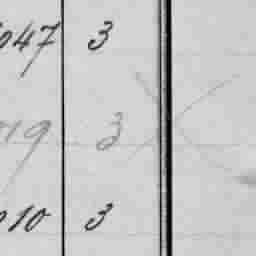 047 3
19 3
010 3